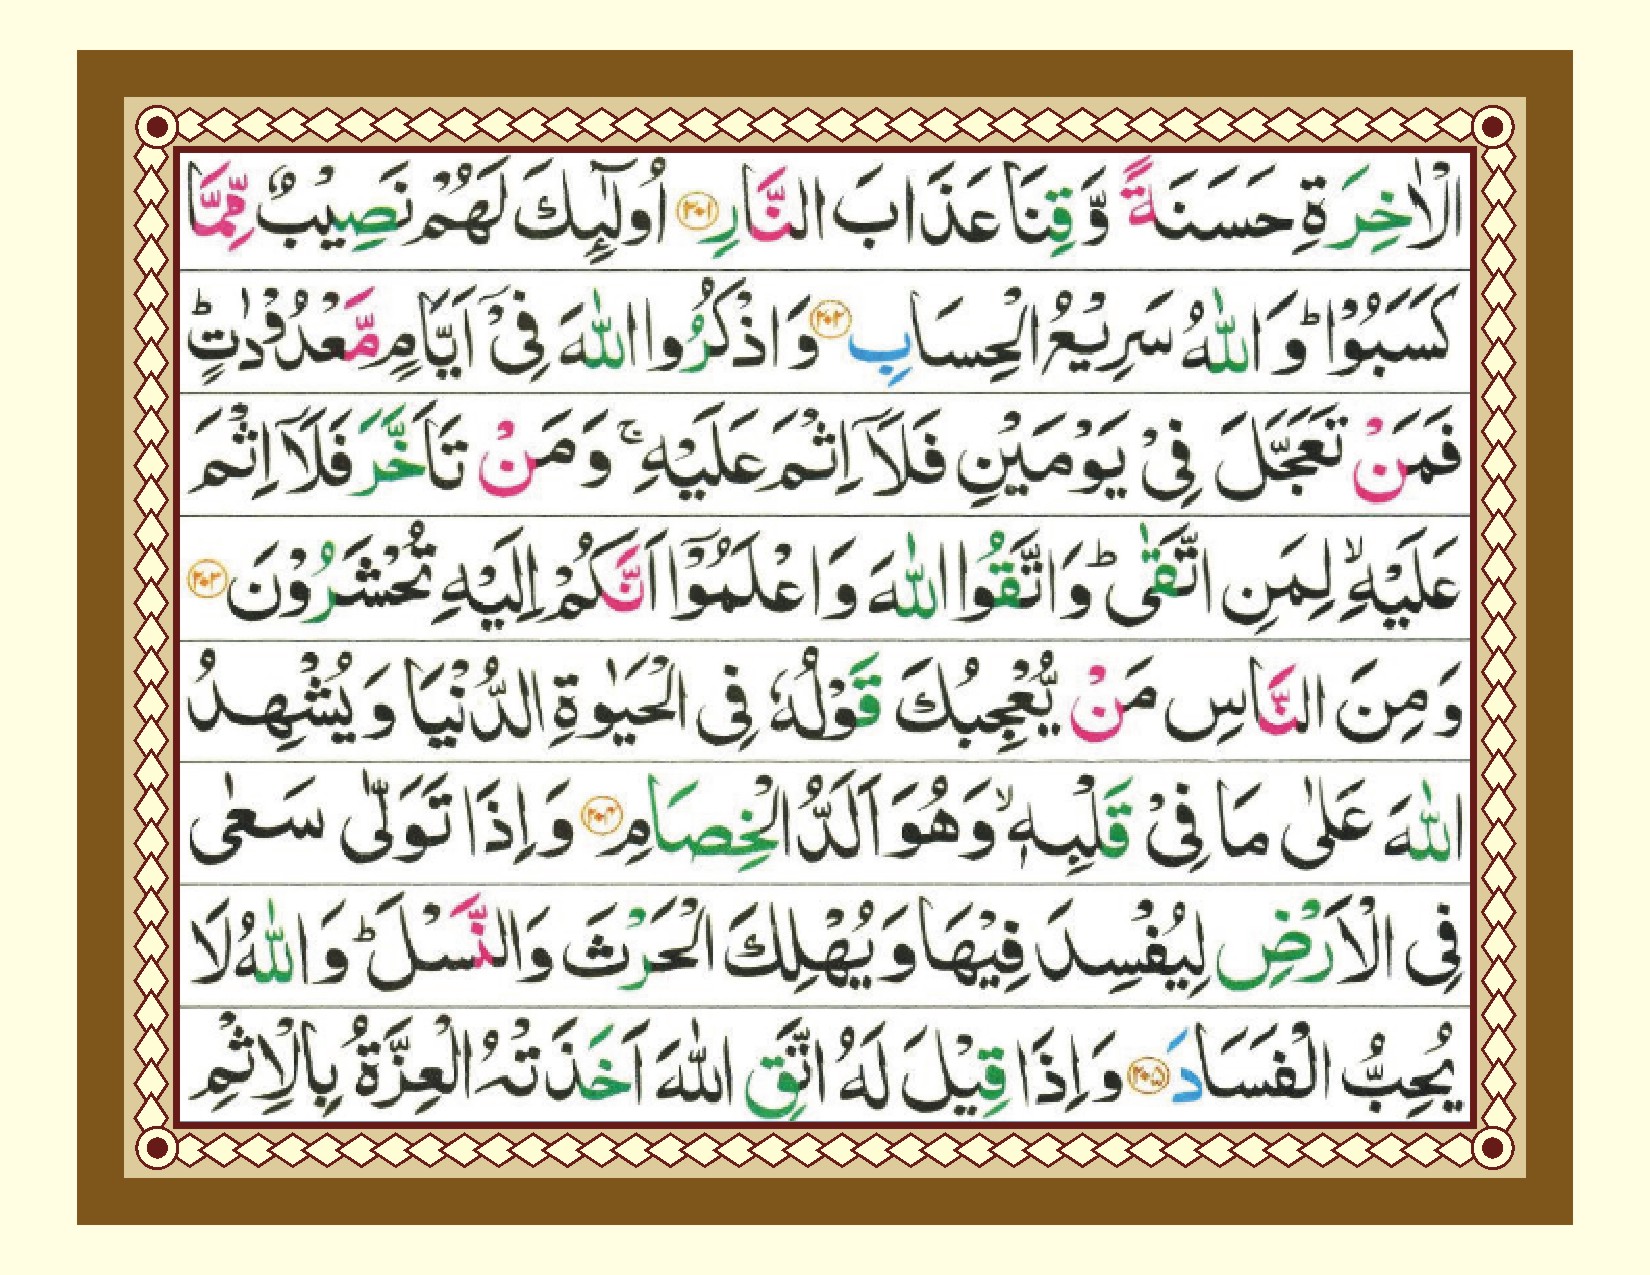 الْاٰخِرَةِ حَسَنَةً وَّقِنَا عَذَابَ النَّارِ ﴿۲۰۱﴾ اُولٰٓئِكَ لَهُمْ نَصِيْبٌ مِّمَّا
كَسَبُوْا ؕ وَاللّٰهُ سَرِيْعُ الْحِسَابِ ﴿۲۰۲﴾ وَاذْكُرُوا اللّٰهَ فِيْٓ اَيَّامٍ مَّعْدُوْدٰتٍ ؕ
فَمَنْ تَعَجَّلَ فِيْ يَوْمَيْنِ فَلَاۤ اِثْمَ عَلَيْهِ ۚ وَمَنْ تَاَخَّرَ فَلَاۤ اِثْمَ
عَلَيْهِ ۙ لِمَنِ اتَّقٰى ؕ وَاتَّقُوا اللّٰهَ وَاعْلَمُوْٓا اَنَّكُمْ اِلَيْهِ تُحْشَرُوْنَ ﴿۲۰۳﴾
وَمِنَ النَّاسِ مَنْ يُّعْجِبُكَ قَوْلُهٗ فِى الْحَيٰوةِ الدُّنْيَا وَيُشْهِدُ
اللّٰهَ عَلٰى مَا فِيْ قَلْبِهٖ ۙ وَهُوَ اَلَدُّ الْخِصَامِ ﴿۲۰۴﴾ وَاِذَا تَوَلّٰى سَعٰى
فِى الْاَرْضِ لِيُفْسِدَ فِيْهَا وَيُهْلِكَ الْحَرْثَ وَالنَّسْلَ ؕ وَاللّٰهُ لَا
يُحِبُّ الْفَسَادَ ﴿۲۰۵﴾ وَاِذَا قِيْلَ لَهُ اتَّقِ اللّٰهَ اَخَذَتْهُ الْعِزَّةُ بِالْاِثْمِ